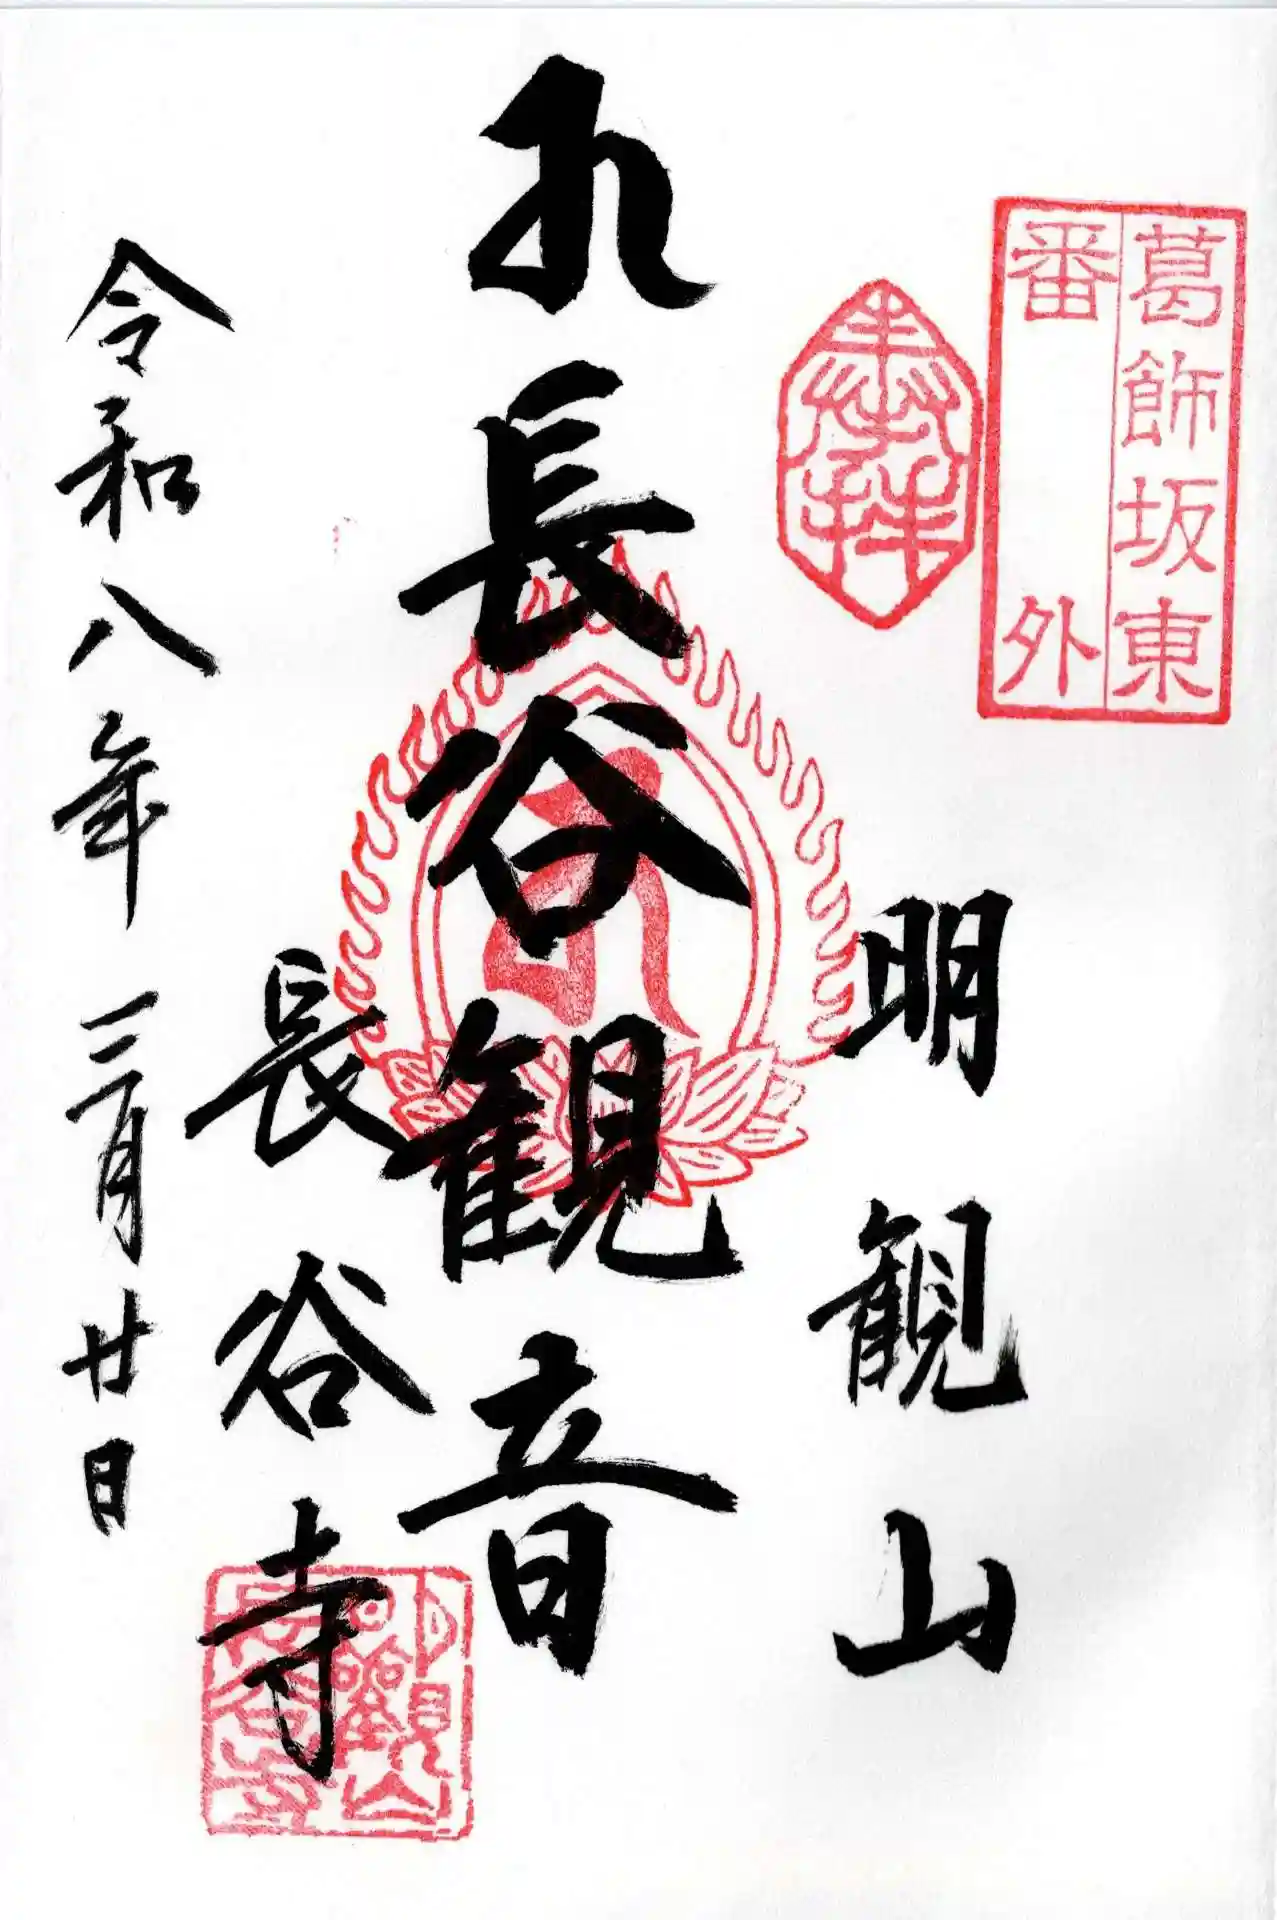 葛飾坂東
番外
奉拝
明観山
長谷観音
長谷寺
令和八年三月廿日